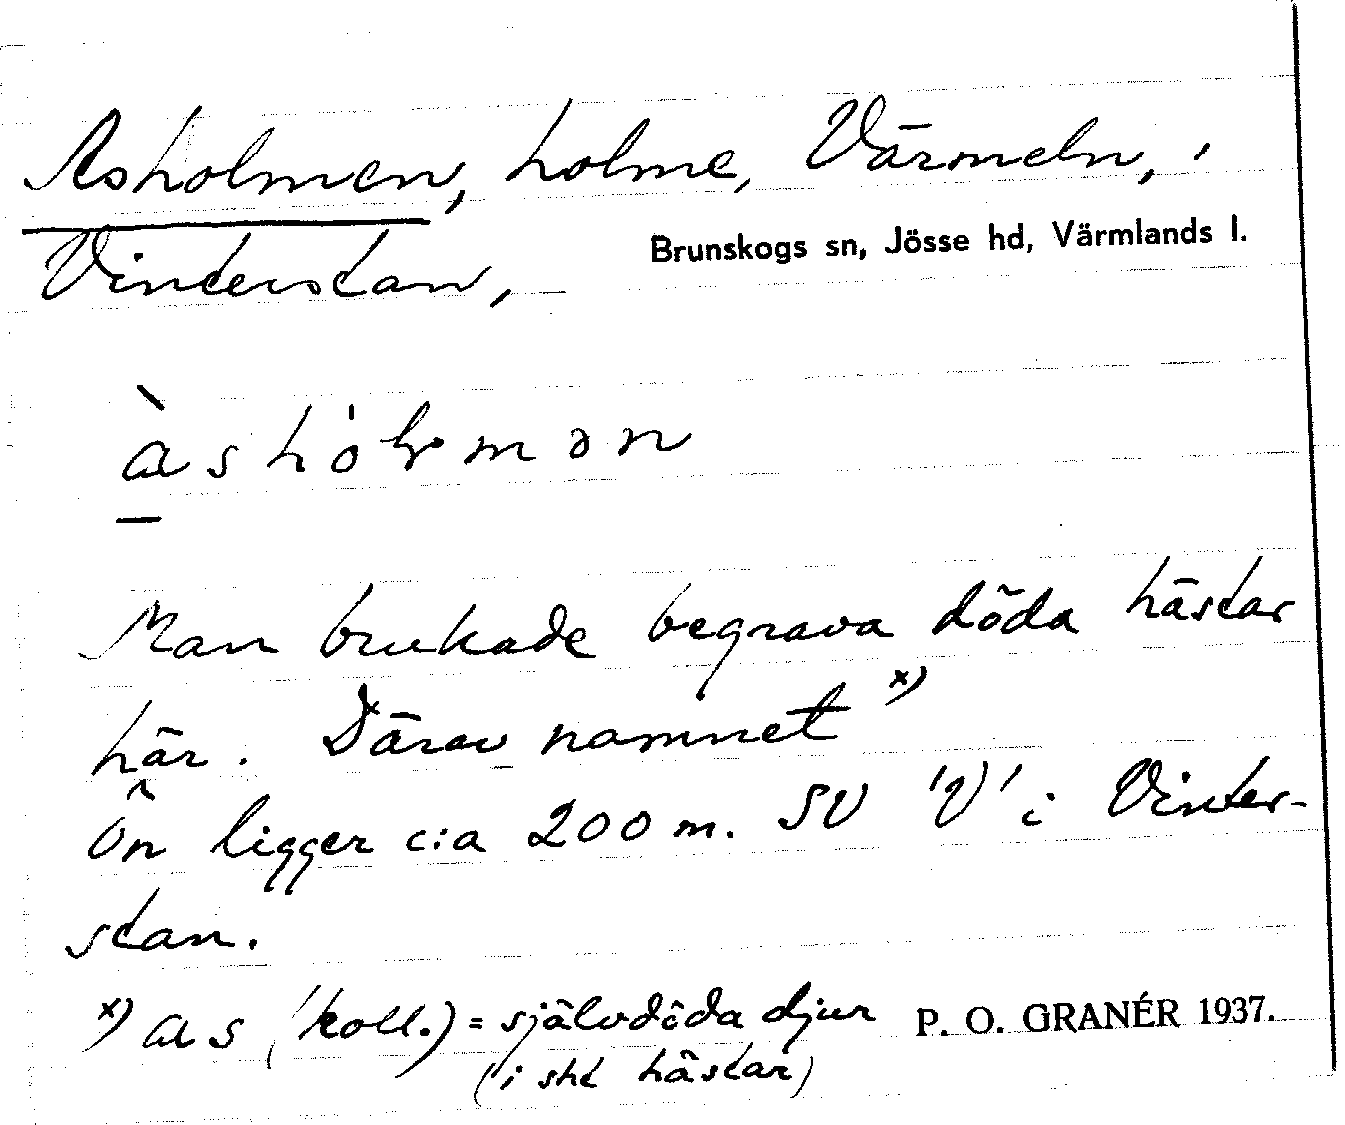 Asholmen, holme, Värmeln, i
Vinterstan,
Brunskogs sn, Jösse hd, Värmlands l.
Man brukade begrava döda hästar
här. Därav namnet x)
Ön ligger c:a 200 m. SV 'V' i Vinter-
stan.
x) as (koll.) = självdöda djur
(i sht hästar)
P. O. GRANÉR 1937.